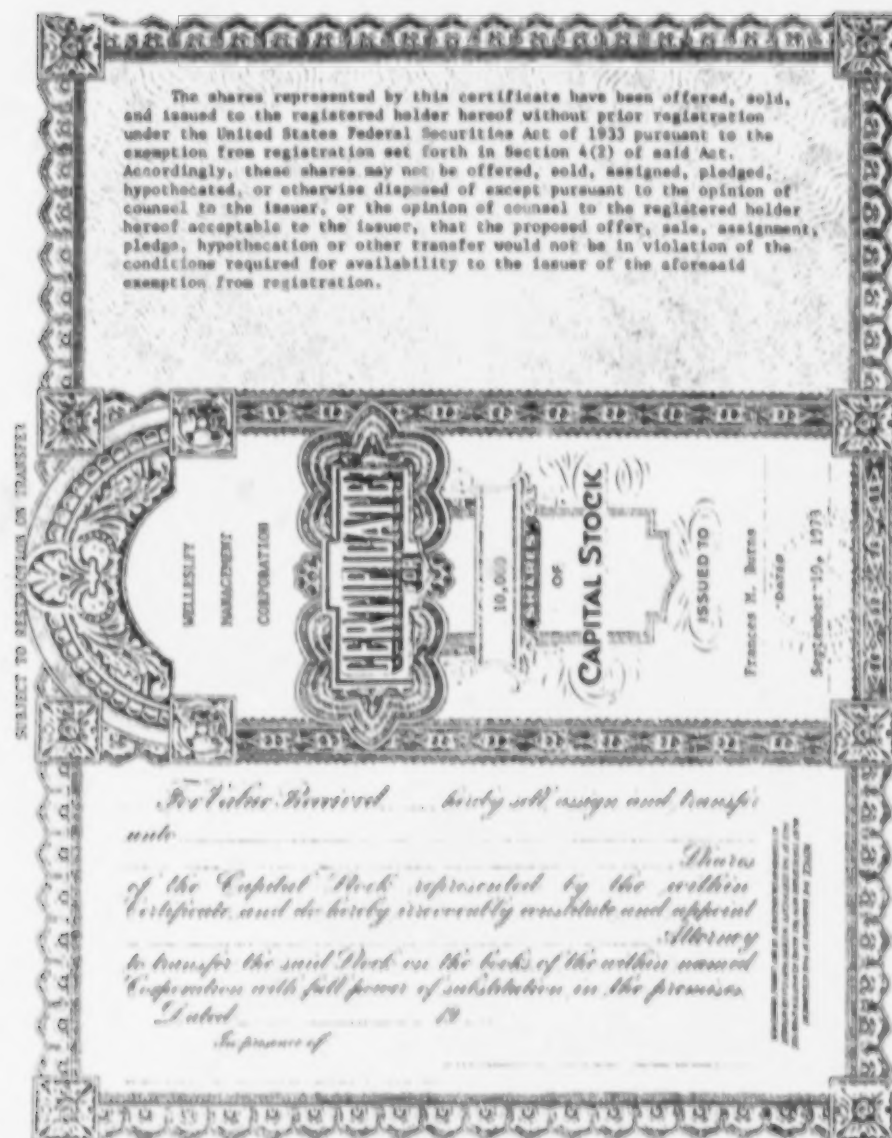 The shares represented by this certificate have been offered, sold,
and issued to the registered holder hereof without prior registration
under the United States Federal Securities Act of 1933 pursuant to the
exemption from registration set forth in Section 4(2) of said Act.
Accordingly, these shares may not be offered, sold, assigned, pledged,
hypothecated, or otherwise disposed of except pursuant to the opinion of
counsel to the issuer, or the opinion of counsel to the registered holder
hereof acceptable to the issuer, that the proposed offer, sale, assignment,
pledge, hypothecation or other transfer would not be in violation of the
conditions required for availability to the issuer of the aforesaid
exemption from registration.
SUBJECT TO RESTRICTION ON TRANSFER
WELLESLEY
MANAGEMENT
CORPORATION
CERTIFICATE
FOR
10,000
SHARES
OF
CAPITAL STOCK
ISSUED TO
Frances M. Burns
DATED
September 19, 1973
For Value Received hereby sell, assign and transfer
unto
Shares
of the Capital Stock represented by the within
Certificate, and do hereby irrevocably constitute and appoint
Attorney
to transfer the said Stock on the books of the within named
Corporation with full power of substitution in the premises.
Dated 19
In presence of